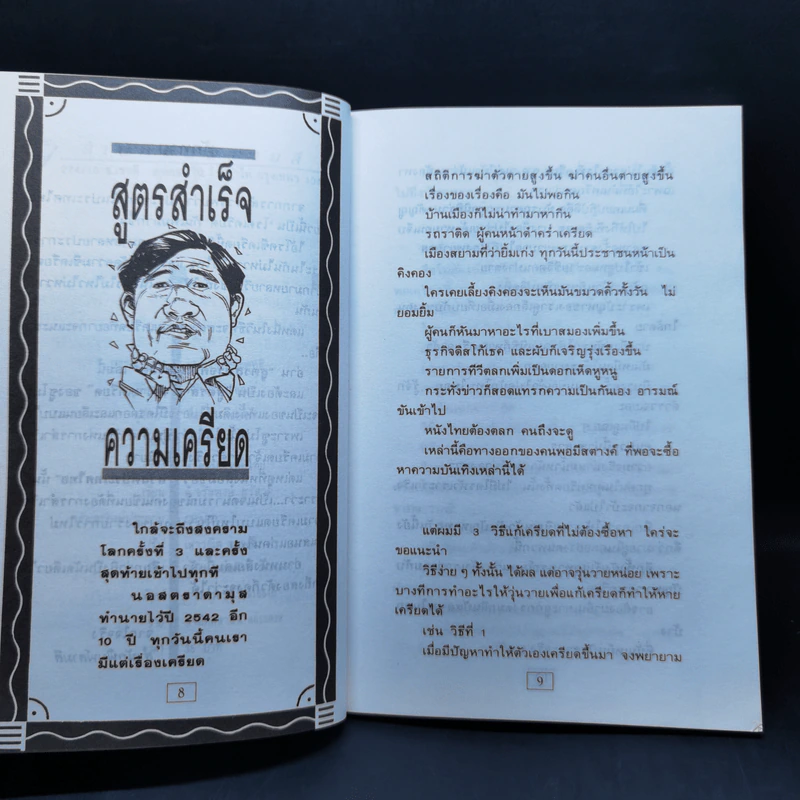 สูตรสำเร็จ
ความเครียด
ใกล้จะถึงสงคราม
โลกครั้งที่ 3 และครั้ง
สุดท้ายเข้าไปทุกที
นอสตราดามุส
ทำนายไว้ปี 2542 อีก
10 ปี ทุกวันนี้คนเรา
มีแต่เรื่องเครียด
8
สถิติการฆ่าตัวตายสูงขึ้น ฆ่าคนอื่นตายสูงขึ้น
เรื่องของเรื่องคือ มันไม่พอกิน
บ้านเมืองก็ไม่น่าทำมาหากิน
รถราติด ผู้คนหน้าดำคร่ำเครียด
เมืองสยามที่ว่ายิ้มเก่ง ทุกวันนี้ประชาชนหน้าเป็น
คิงคอง
ใครเคยเลี้ยงคิงคองจะเห็นมันขมวดคิ้วทั้งวัน ไม่
ยอมยิ้ม
ผู้คนก็หันมาหาอะไรที่เบาสมองเพิ่มขึ้น
ธุรกิจดิสโก้เธค และผับก็เจริญรุ่งเรืองขึ้น
รายการทีวีตลกเพิ่มเป็นดอกเห็ดหูหนู
กระทั่งข่าวก็สอดแทรกความเป็นกันเอง อารมณ์
ขันเข้าไป
หนังไทยต้องตลก คนถึงจะดู
เหล่านี้คือทางออกของคนพอมีสตางค์ ที่พอจะซื้อ
หาความบันเทิงเหล่านี้ได้
แต่ผมมี 3 วิธีแก้เครียดที่ไม่ต้องซื้อหา ใคร่จะ
ขอแนะนำ
วิธีง่าย ๆ ทั้งนั้น ได้ผล แต่อาจวุ่นวายหน่อย เพราะ
บางทีการทำอะไรให้วุ่นวายเพื่อแก้เครียดก็ทำให้หาย
เครียดได้
เช่น วิธีที่ 1
เมื่อมีปัญหาทำให้ตัวเองเครียดขึ้นมา จงพยายาม
9